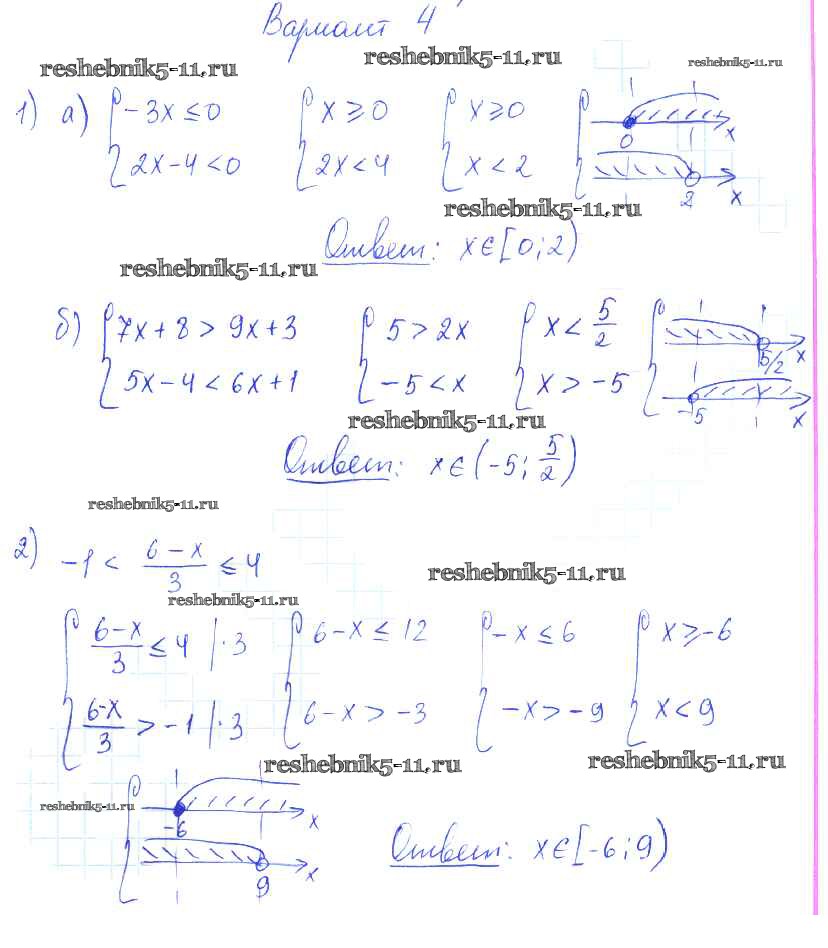 Вариант 4
reshebnik5-11.ru reshebnik5-11.ru reshebnik5-11.ru
1) а) { -3x ≤ 0 { x ≥ 0 { x ≥ 0 { 0 x
2x - 4 < 0 2x < 4 x < 2 2 x
reshebnik5-11.ru
Ответ: x ∈ [0; 2)
reshebnik5-11.ru
б) { 7x + 8 > 9x + 3 { 5 > 2x { x < 5/2 { 5/2 x
5x - 4 < 6x + 1 -5 < x x > -5 -5 x
reshebnik5-11.ru
Ответ: x ∈ (-5; 5/2)
reshebnik5-11.ru
2) -1 < (6 - x)/3 ≤ 4
reshebnik5-11.ru
reshebnik5-11.ru
{ (6-x)/3 ≤ 4 | ·3 { 6-x ≤ 12 { -x ≤ 6 { x ≥ -6
(6-x)/3 > -1 | ·3 6-x > -3 -x > -9 x < 9
reshebnik5-11.ru reshebnik5-11.ru
reshebnik5-11.ru
{ -6 x
9 x
Ответ: x ∈ [-6; 9)